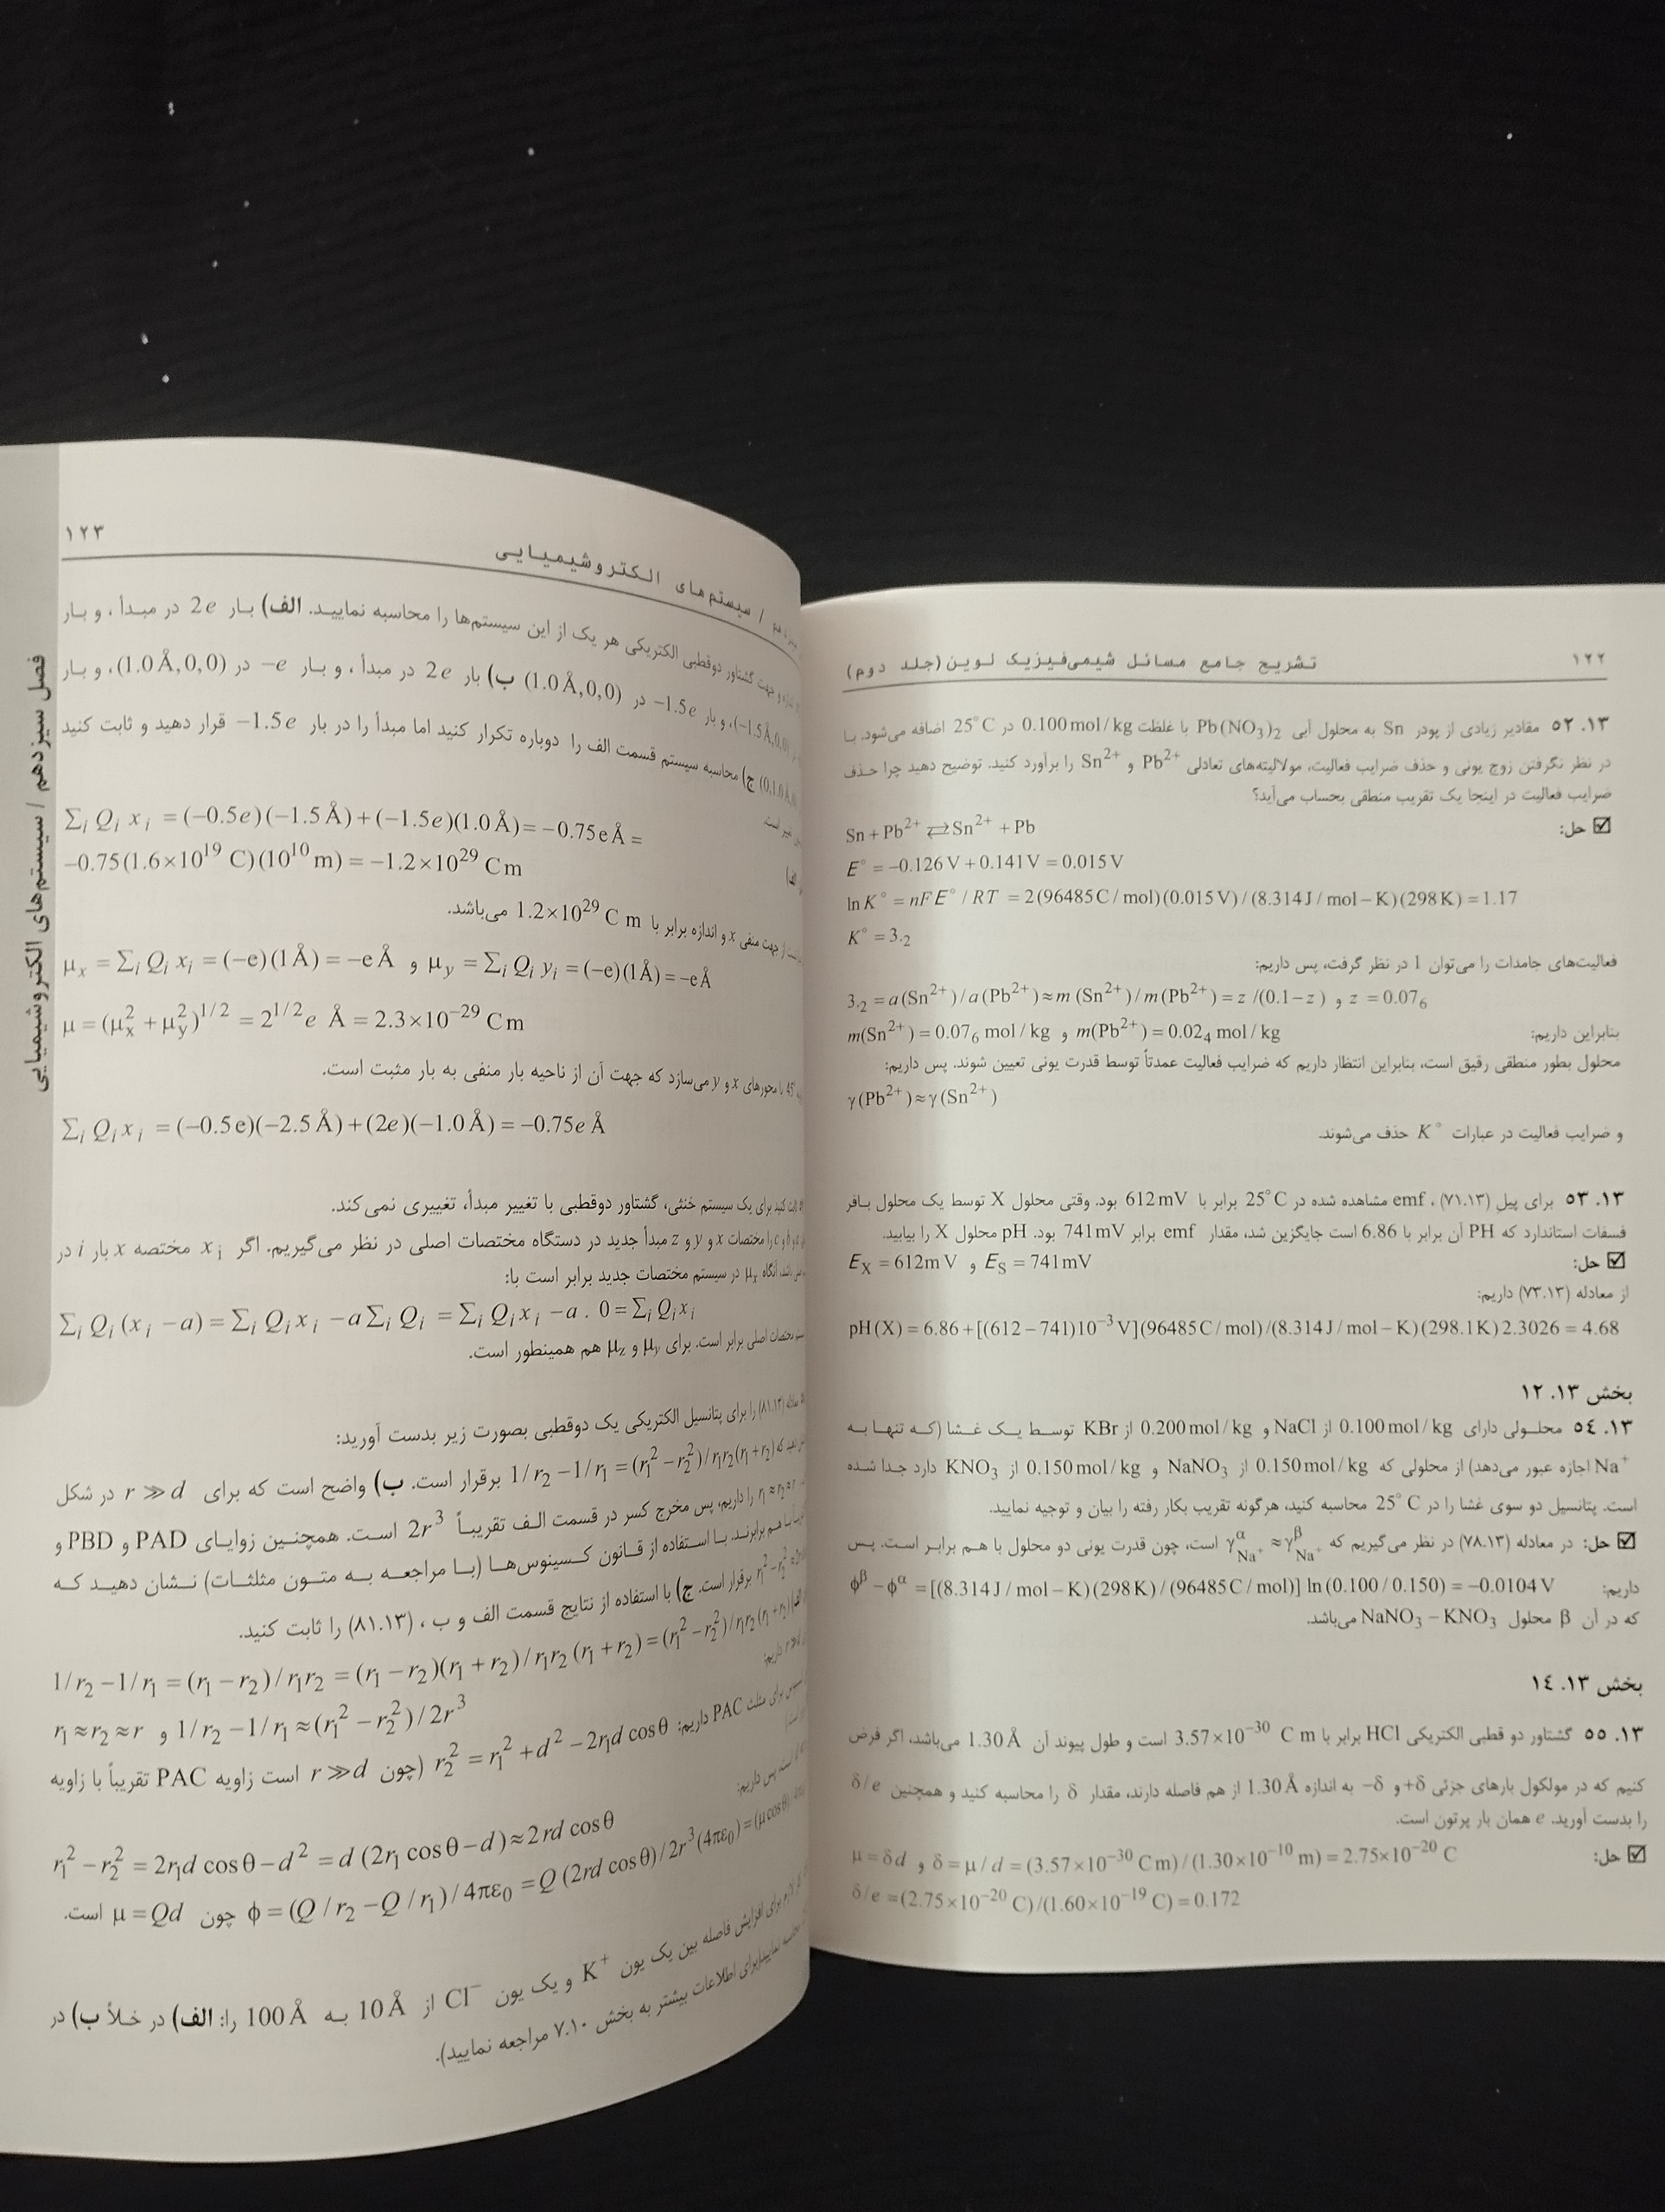 ۱۲۲
تشریح جامع مسائل شیمی‌فیزیک لوین (جلد دوم)
۵۲ .۱۳ مقادیر زیادی از پودر Sn به محلول آبی Pb(NO₃)₂ با غلظت 0.100 mol/kg در 25°C اضافه می‌شود. با
در نظر نگرفتن زوج یونی و حذف ضرایب فعالیت، مولالیته‌های تعادلی Pb²⁺ و Sn²⁺ را برآورد کنید. توضیح دهید چرا حذف
ضرایب فعالیت در اینجا یک تقریب منطقی بحساب می‌آید؟
☑ حل:
Sn + Pb²⁺ ⇄ Sn²⁺ + Pb
E° = −0.126 V + 0.141 V = 0.015 V
ln K° = nFE° / RT = 2(96485 C/mol)(0.015 V)/(8.314 J/mol−K)(298 K) = 1.17
K° = 3.₂
فعالیت‌های جامدات را می‌توان 1 در نظر گرفت، پس داریم:
3.₂ = a(Sn²⁺)/a(Pb²⁺) ≈ m(Sn²⁺)/m(Pb²⁺) = z/(0.1−z) و z = 0.07₆
بنابراین داریم: m(Sn²⁺) = 0.07₆ mol/kg و m(Pb²⁺) = 0.02₄ mol/kg
محلول بطور منطقی رقیق است، بنابراین انتظار داریم که ضرایب فعالیت عمدتاً توسط قدرت یونی تعیین شوند. پس داریم:
γ(Pb²⁺) ≈ γ(Sn²⁺)
و ضرایب فعالیت در عبارات K° حذف می‌شوند.
۵۳ .۱۳ برای پیل (۷۱.۱۳)، emf مشاهده شده در 25°C برابر با 612 mV بود. وقتی محلول X توسط یک محلول بافر
فسفات استاندارد که PH آن برابر با 6.86 است جایگزین شد، مقدار emf برابر 741 mV بود. pH محلول X را بیابید.
☑ حل: E_X = 612 mV و E_S = 741 mV
از معادله (۷۳.۱۳) داریم:
pH(X) = 6.86 + [(612 − 741)10⁻³ V](96485 C/mol)/(8.314 J/mol−K)(298.1 K) 2.3026 = 4.68
بخش ۱۳. ۱۲
۵٤ .۱۳ محلولی دارای 0.100 mol/kg از NaCl و 0.200 mol/kg از KBr توسط یک غشا (که تنها به
Na⁺ اجازه عبور می‌دهد) از محلولی که 0.150 mol/kg از NaNO₃ و 0.150 mol/kg از KNO₃ دارد جدا شده
است. پتانسیل دو سوی غشا را در 25°C محاسبه کنید، هرگونه تقریب بکار رفته را بیان و توجیه نمایید.
☑ حل: در معادله (۷۸.۱۳) در نظر می‌گیریم که γ^α_Na⁺ ≈ γ^β_Na⁺ است، چون قدرت یونی دو محلول با هم برابر است. پس
داریم: φ^β − φ^α = [(8.314 J/mol−K)(298 K)/(96485 C/mol)] ln(0.100/0.150) = −0.0104 V
که در آن β محلول NaNO₃ − KNO₃ می‌باشد.
بخش ۱۳. ۱٤
۵۵ .۱۳ گشتاور دو قطبی الکتریکی HCl برابر با 3.57×10⁻³⁰ C m است و طول پیوند آن 1.30 Å می‌باشد، اگر فرض
کنیم که در مولکول بارهای جزئی δ+ و δ− به اندازه 1.30 Å از هم فاصله دارند، مقدار δ را محاسبه کنید و همچنین δ/e
را بدست آورید. e همان بار پرتون است.
☑ حل: μ = δd و δ = μ/d = (3.57×10⁻³⁰ C m)/(1.30×10⁻¹⁰ m) = 2.75×10⁻²⁰ C
δ/e = (2.75×10⁻²⁰ C)/(1.60×10⁻¹⁹ C) = 0.172
/ سیستم‌های الکتروشیمیایی
۱۲۳
فصل سیزدهم / سیستم‌های الکتروشیمیایی
و جهت گشتاور دوقطبی الکتریکی هر یک از این سیستم‌ها را محاسبه نمایید. الف) بار 2e در مبدأ، و بار
(−1.5Å,0,0)، و بار −1.5e در (1.0Å,0,0) ب) بار 2e در مبدأ، و بار −e در (1.0Å,0,0)، و بار
(0,1.0Å,0) ج) محاسبه سیستم قسمت الف را دوباره تکرار کنید اما مبدأ را در بار −1.5e قرار دهید و ثابت کنید
Σᵢ Qᵢ xᵢ = (−0.5e)(−1.5 Å) + (−1.5e)(1.0 Å) = −0.75 e Å =
−0.75(1.6×10¹⁹ C)(10¹⁰ m) = −1.2×10²⁹ C m
جهت منفی x و اندازه برابر با 1.2×10²⁹ C m می‌باشد.
μₓ = Σᵢ Qᵢ xᵢ = (−e)(1Å) = −e Å و μ_y = Σᵢ Qᵢ yᵢ = (−e)(1Å) = −e Å
μ = (μₓ² + μ_y²)^1/2 = 2^1/2 e Å = 2.3×10⁻²⁹ C m
45° با محورهای x و y می‌سازد که جهت آن از ناحیه بار منفی به بار مثبت است.
Σᵢ Qᵢ xᵢ = (−0.5e)(−2.5 Å) + (2e)(−1.0 Å) = −0.75e Å
کنید برای یک سیستم خنثی، گشتاور دوقطبی با تغییر مبدأ، تغییری نمی‌کند.
را مختصات x و y و z مبدأ جدید در دستگاه مختصات اصلی در نظر می‌گیریم. اگر xᵢ مختصه x بار i در
باشد، آنگاه μₓ در سیستم مختصات جدید برابر است با:
Σᵢ Qᵢ (xᵢ − a) = Σᵢ Qᵢ xᵢ − a Σᵢ Qᵢ = Σᵢ Qᵢ xᵢ − a . 0 = Σᵢ Qᵢ xᵢ
مختصات اصلی برابر است. برای μ_y و μ_z هم همینطور است.
(۸۱.۱۳) را برای پتانسیل الکتریکی یک دوقطبی بصورت زیر بدست آورید:
1/r₂ − 1/r₁ = (r₁² − r₂²)/r₁r₂(r₁ + r₂) برقرار است. ب) واضح است که برای r ≫ d در شکل
را داریم، پس مخرج کسر در قسمت الف تقریباً 2r³ است. همچنین زوایای PAD و PBD و
با هم برابرند. با استفاده از قانون کسینوس‌ها (با مراجعه به متون مثلثات) نشان دهید که
برقرار است. ج) با استفاده از نتایج قسمت الف و ب، (۸۱.۱۳) را ثابت کنید.
1/r₂ − 1/r₁ = (r₁ − r₂)/r₁r₂ = (r₁ − r₂)(r₁ + r₂)/r₁r₂(r₁ + r₂) = (r₁² − r₂²)/r₁r₂(r₁ + r₂)
r₁ ≈ r₂ ≈ r و 1/r₂ − 1/r₁ ≈ (r₁² − r₂²)/2r³
برای مثلث PAC داریم: r₂² = r₁² + d² − 2r₁d cosθ (چون r ≫ d است زاویه PAC تقریباً با زاویه
پس داریم:
r₁² − r₂² = 2r₁d cosθ − d² = d(2r₁ cosθ − d) ≈ 2rd cosθ
φ = (Q/r₂ − Q/r₁)/4πε₀ = Q(2rd cosθ)/2r³(4πε₀) = چون μ = Qd است.
برای افزایش فاصله بین یک یون K⁺ و یک یون Cl⁻ از 10 Å به 100 Å را: الف) در خلأ ب) در
برای اطلاعات بیشتر به بخش ۷.۱۰ مراجعه نمایید).